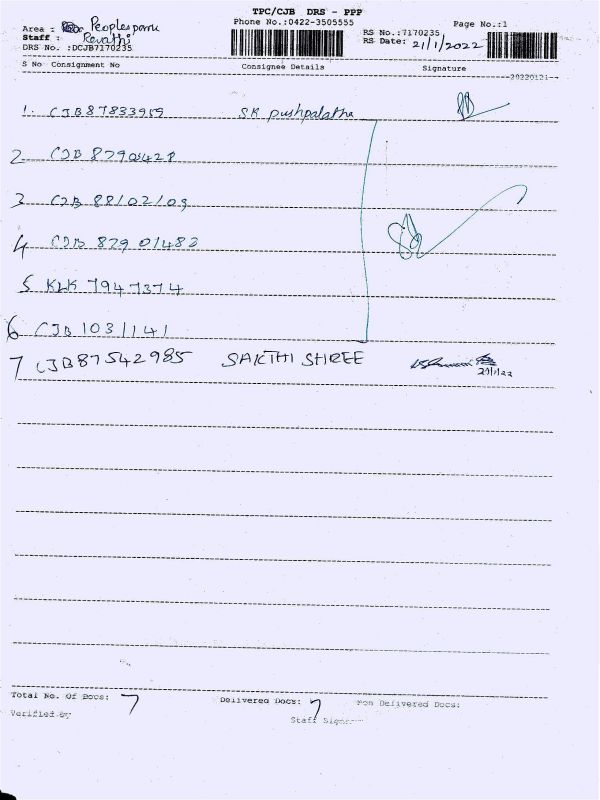 TPC/CJB DRS - PPP
Area : Peoples
Phone No.:0422-3505555
Page No.:1
Staff : Revathi
RS No.:7170235
DRS No. :DCJB7170235
RS Date: 21/1/2022
S No Consignment No Consignee Details Signature
20220121
1. CJB87833959 SR pushpalatha
2 CJB
3 CJB 88/02/09
4 CJB 82901482
5 KLK 7947374
6 CJB 1031141
7 CJB87542985 SAKTHI SHREE
21/1/22
Total No. Of Docs: 7 Delivered Docs: 7 Non Delivered Docs:
Verified By
Staff